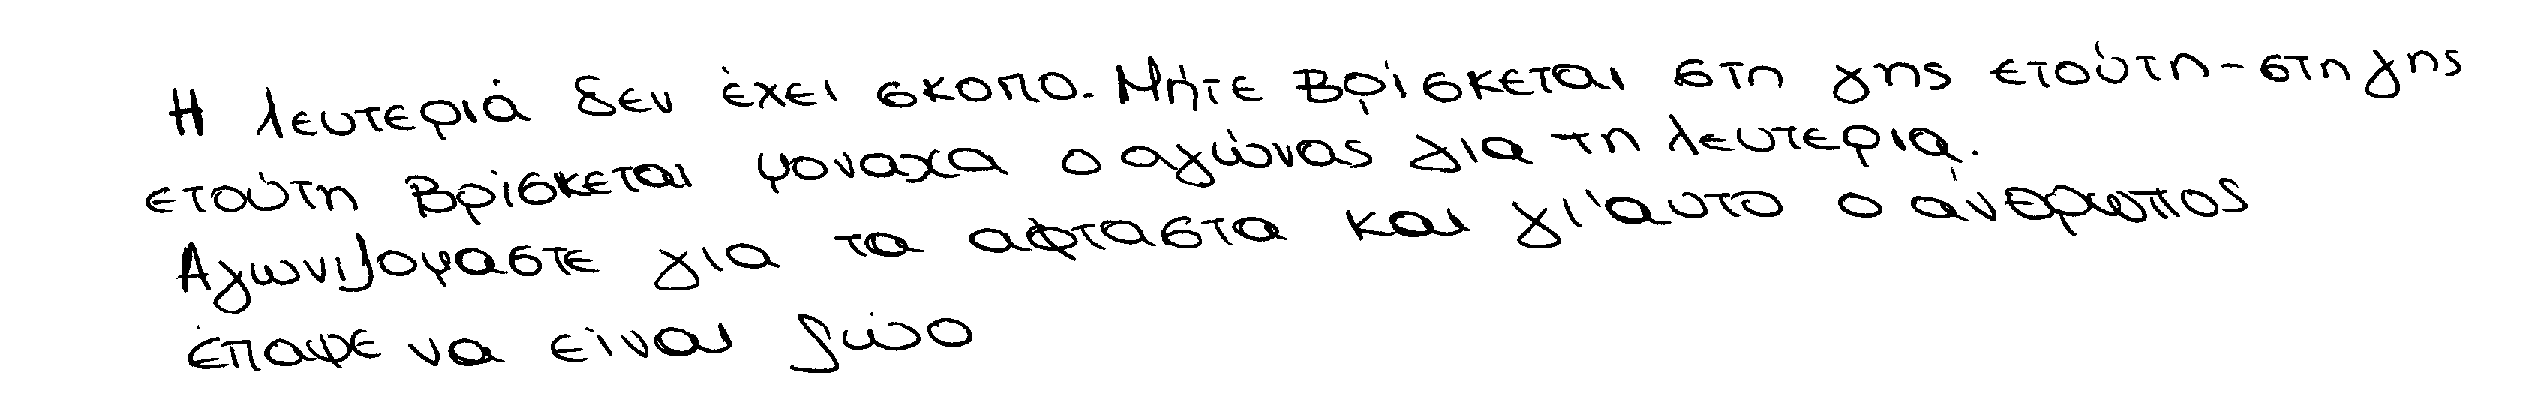 Η λευτεριά δεν έχει σκοπο. Μήτε βρίσκεται στη γης ετούτη-στη γης
ετούτη βρίσκεται μοναχα ο αγώνας για τη λευτερια.
Αγωνιζομαστε για τα αφταστα και γι'αυτο ο άνθρωπος
έπαψε να είναι ζώο